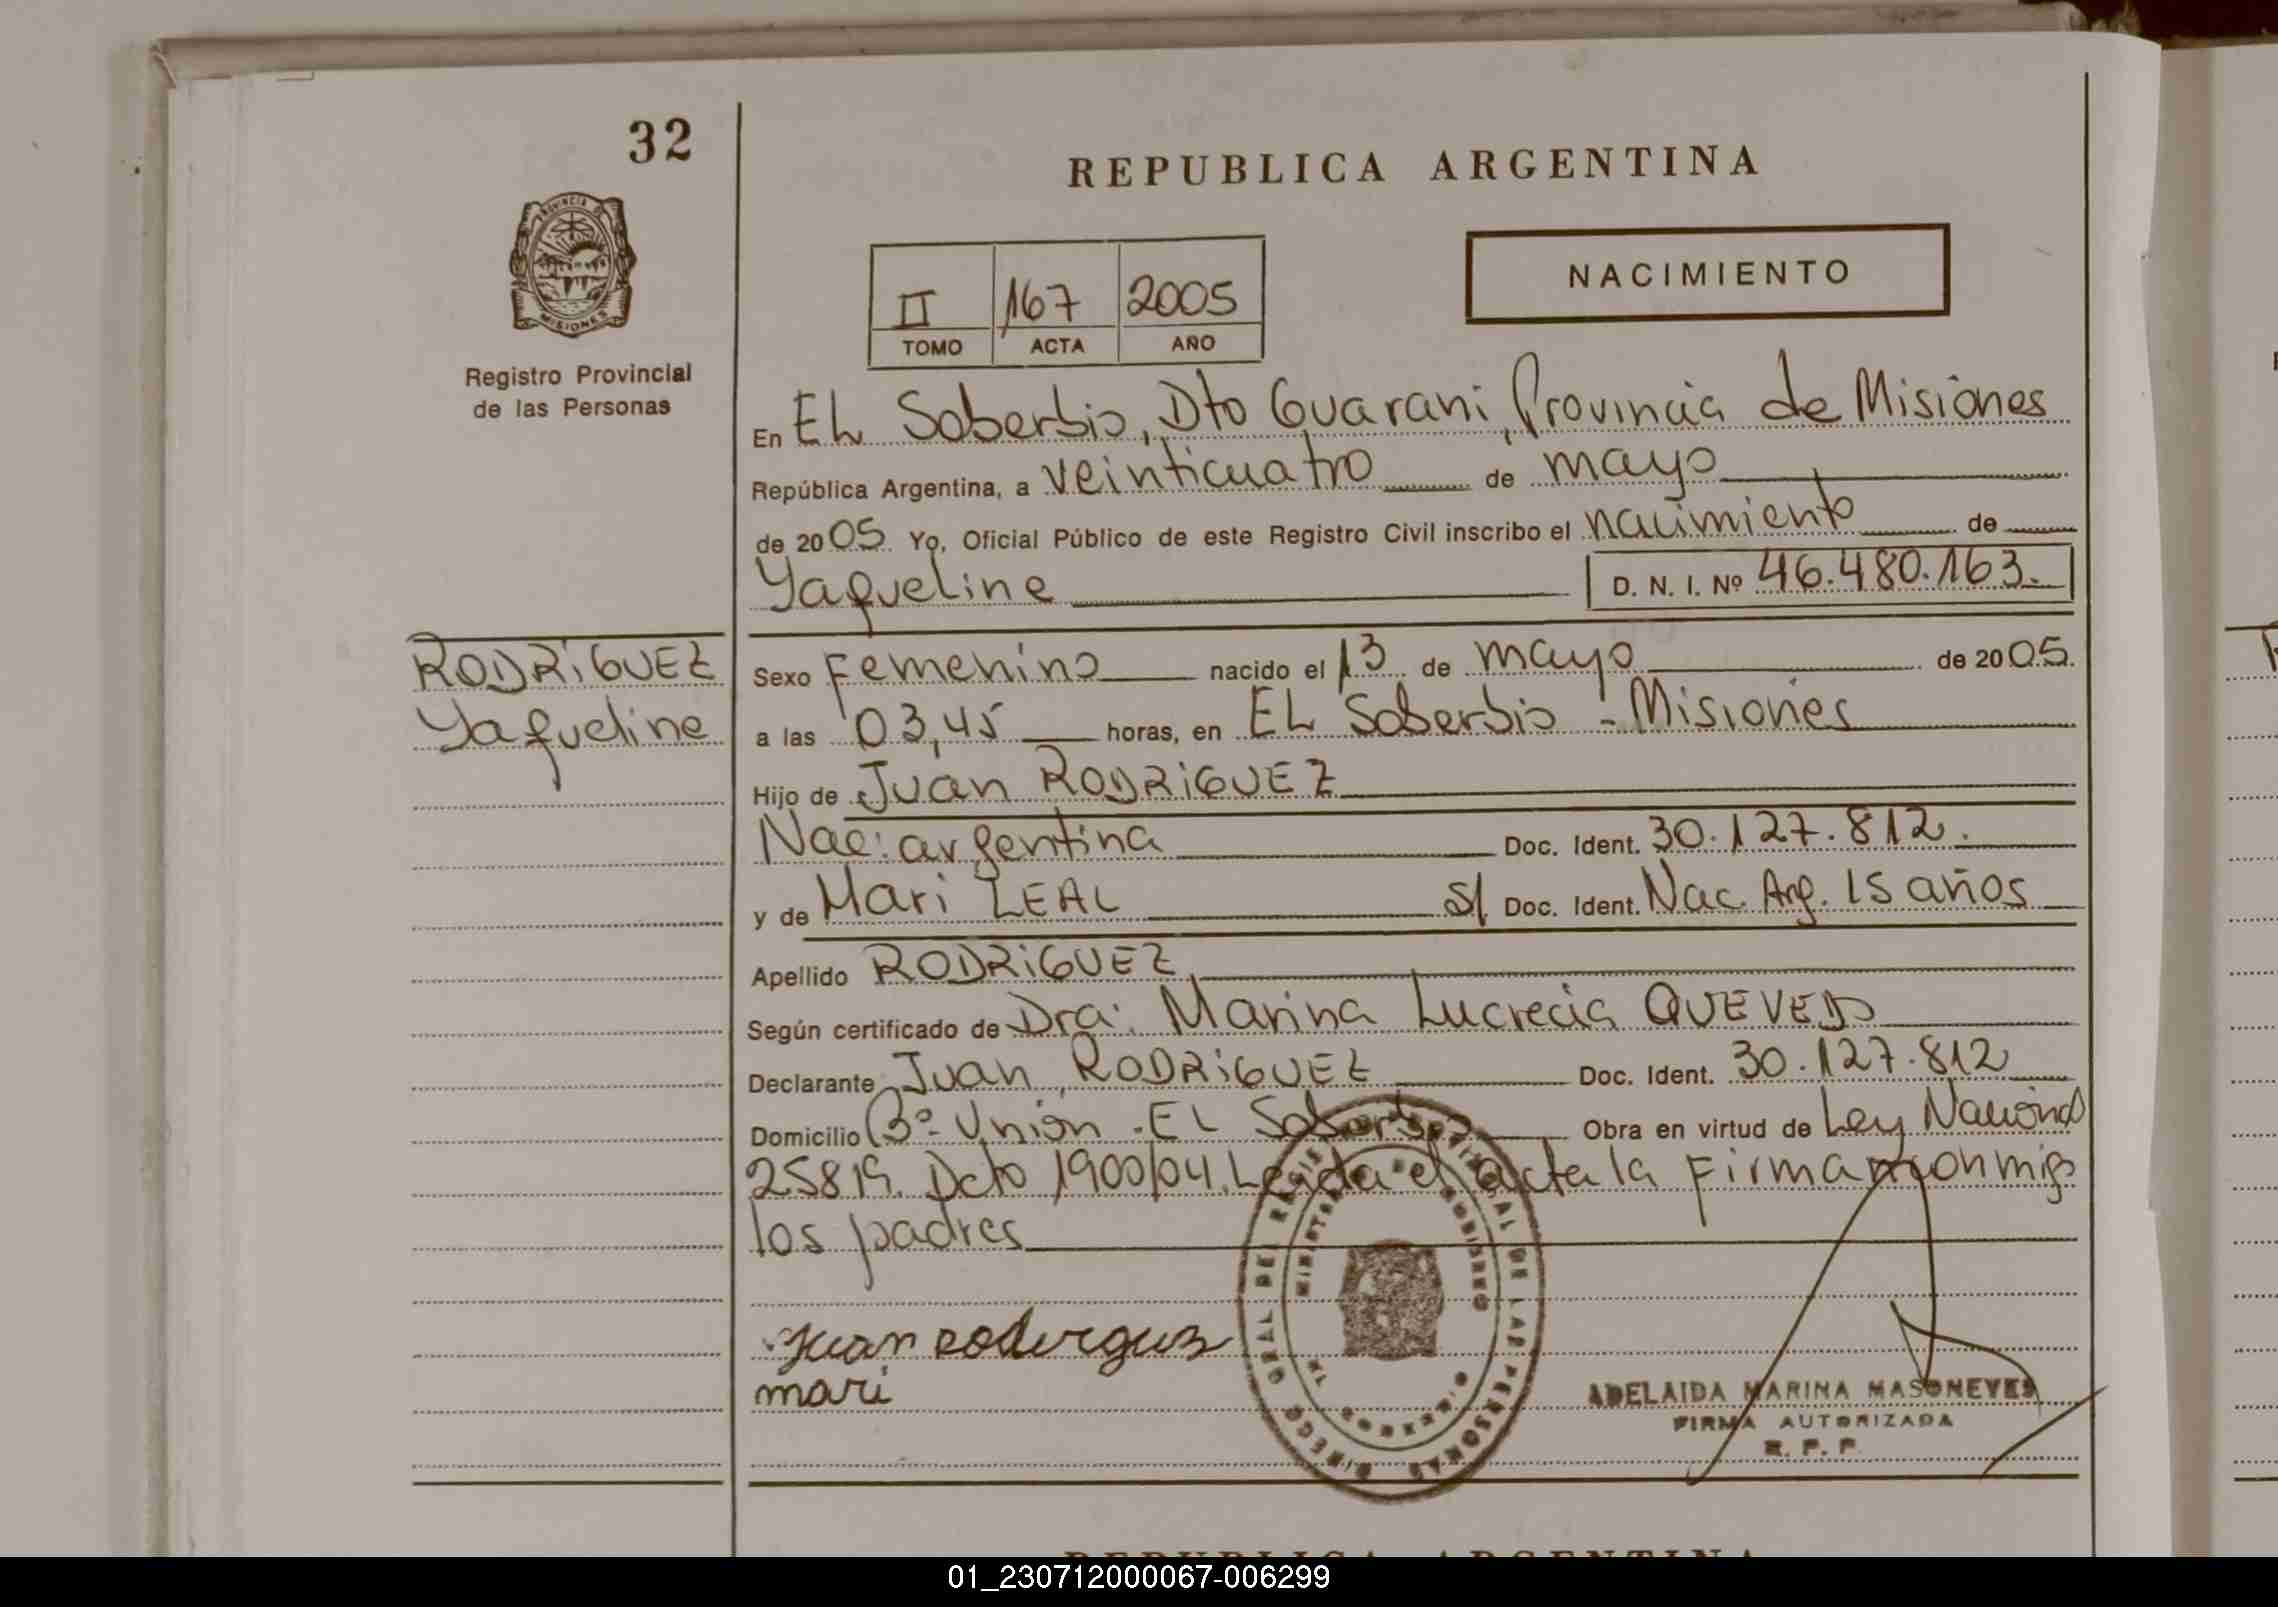 32
REPUBLICA ARGENTINA
PROVINCIA DE
MISIONES
Registro Provincial
de las Personas
II 167 2005
TOMO ACTA AÑO
NACIMIENTO
En EL Soberbio, Dto Guarani, Provincia de Misiones
República Argentina, a veinticuatro de mayo
de 2005 Yo, Oficial Público de este Registro Civil inscribo el nacimiento de
Yaqueline D. N. I. Nº 46.480.163.
RODRiGUEZ
Yaqueline
Sexo Femenino nacido el 13 de mayo de 2005.
a las 03,45 horas, en EL Soberbio - Misiones
Hijo de Juan RODRiGUEZ
Nac: argentina Doc. Ident. 30.127.812.
y de Mari LEAL S/ Doc. Ident. Nac. Arg. 15 años
Apellido RODRiGUEZ
Según certificado de Dra: Marina Lucrecia QUEVEDO
Declarante Juan RODRiGUEZ Doc. Ident. 30.127.812
Domicilio Bº Unión - EL Soberbio Obra en virtud de Ley Nacional
25819. Dcto 1900/04. Leida el acta la Firman conmigo
los padres
Juan Rodergues
mari
ADELAIDA MARINA MASONEVES
FIRMA AUTORIZADA
R. P. P.
REPUBLICA ARGENTINA
01_230712000067-006299